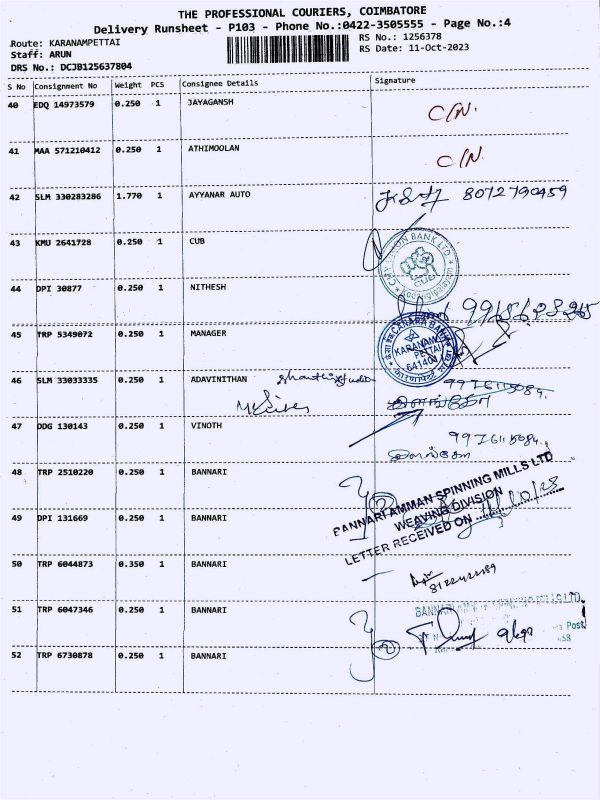 THE PROFESSIONAL COURIERS, COIMBATORE
Delivery Runsheet - P103 - Phone No.:0422-3505555 - Page No.:4
Route: KARANAMPETTAI
RS No.: 1256378
Staff: ARUN
RS Date: 11-Oct-2023
DRS No.: DCJB125637804
S No Consignment No Weight PCS Consignee Details Signature
40 EDQ 14973579 0.250 1 JAYAGANSH C/N.
41 MAA 571210412 0.250 1 ATHIMOOLAN C/N.
42 SLM 330283286 1.770 1 AYYANAR AUTO 8072790459
43 KMU 2641728 0.250 1 CUB
CITY UNION BANK LTD
CUB
44 DPI 30877 0.250 1 NITHESH
45 TRP 5349072 0.250 1 MANAGER
CANARA BANK
KARANAM
PETTAI
641401
46 SLM 33033335 0.250 1 ADAVINITHAN
இளங்கோ
47 DDG 130143 0.250 1 VINOTH
9976115084
இளங்கோ
48 TRP 2510220 0.250 1 BANNARI
BANNARI AMMAN SPINNING MILLS LTD
WEAVING DIVISION
LETTER RECEIVED ON
49 DPI 131669 0.250 1 BANNARI
50 TRP 6044873 0.350 1 BANNARI
51 TRP 6047346 0.250 1 BANNARI
BANNARI
Post
52 TRP 6730878 0.250 1 BANNARI